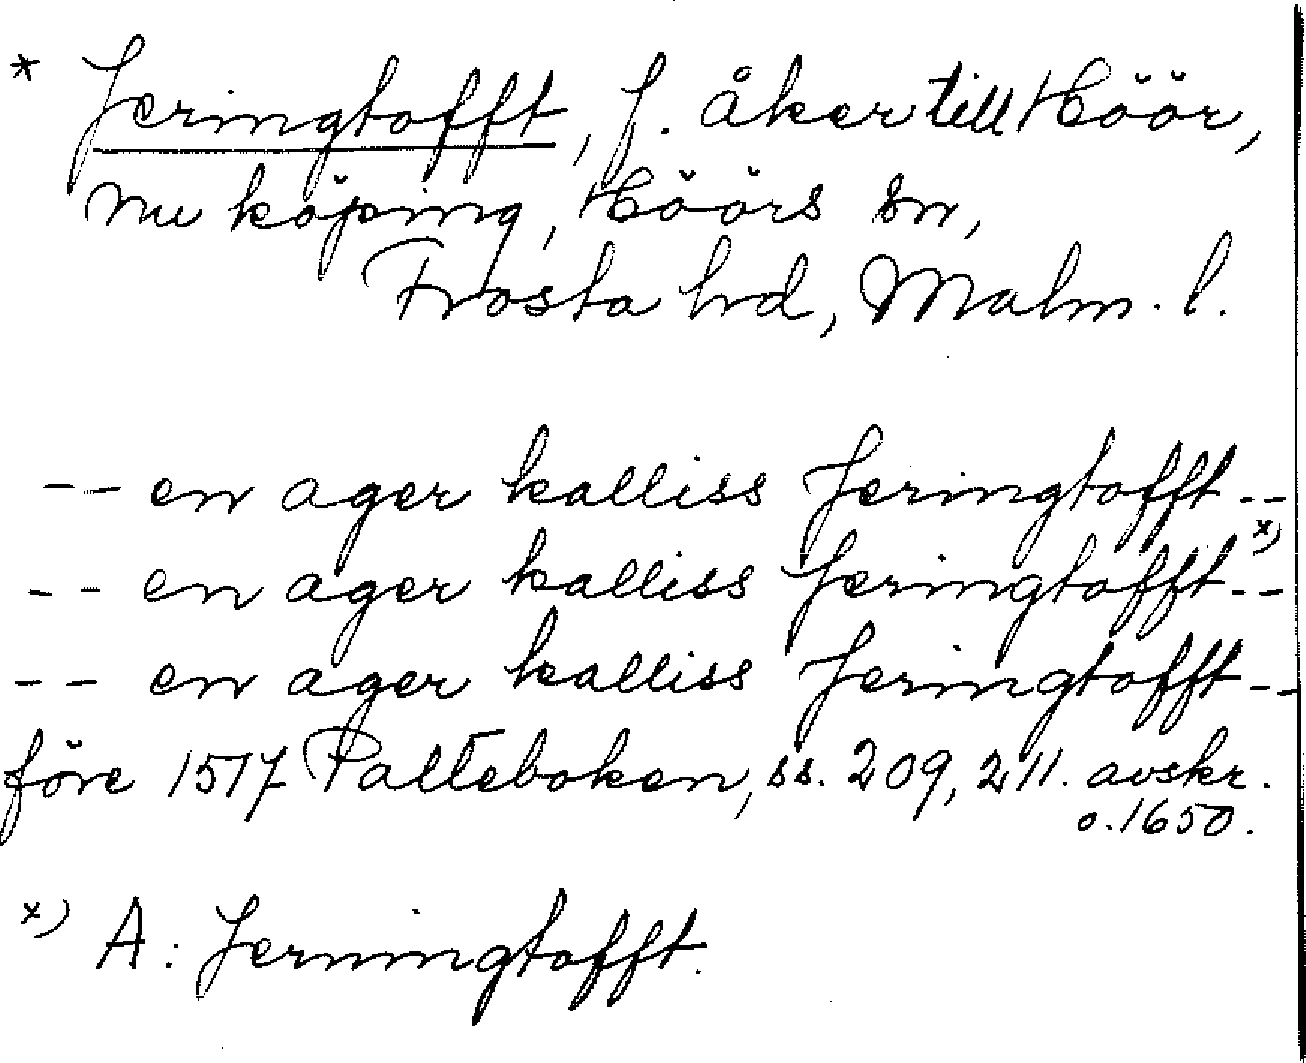 * Jeringtofft, f. åker till Höör,
nu köping, Höörs sn,
Frosta hd, Malm. l.
-- en ager kalliss Jeringtofft --
-- en ager kalliss Jeringtofft -- x)
-- en ager kalliss Jeringtofft --
före 1517 Palteboken, ss. 209, 211. avskr.
o. 1650.
x) A: Jerningtofft.